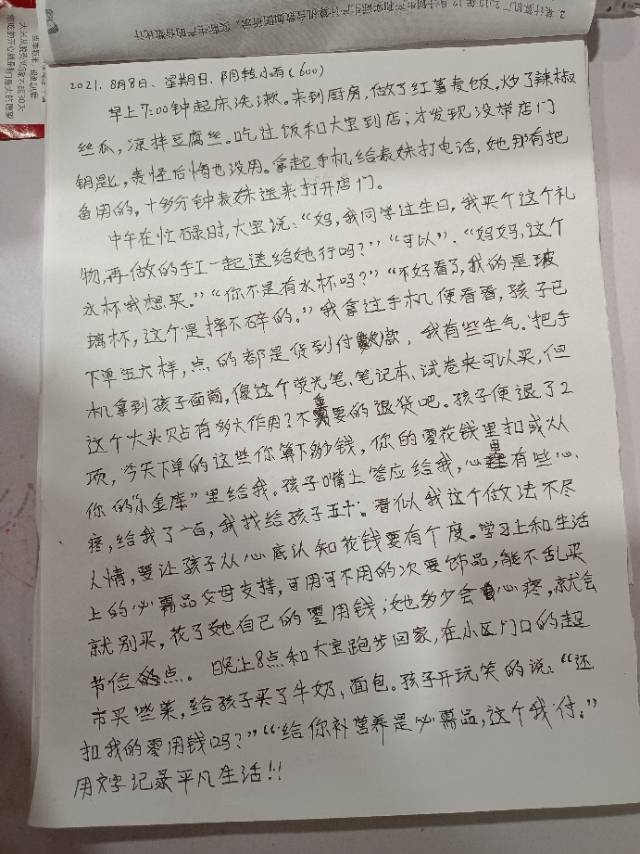 2021. 8月8日、星期日、阴转小雨(600)
早上7:00钟起床洗漱。来到厨房,做了红薯麦饭,炒了辣椒
丝瓜,凉拌豆腐丝。吃过饭和大宝到店;才发现没带店门
钥匙,责怪后悔也没用。拿起手机给表妹打电话,她那有把
备用的,十多分钟表妹送来打开店门。
中午在忙碌时,大宝说:“妈,我同学过生日,我买个这个礼
物再做的手工一起送给她行吗?”“可以”.“妈妈,这个
水杯我想买。”“你不是有水杯吗?”“不好看了,我的是玻
璃杯,这个是摔不碎的。”我拿过手机便看看,孩子已
下单五六样,点的都是货到付款,我有些生气。把手
机拿到孩子面前,像这个荧光笔、笔记本、试卷夹可以买,但
这个大头贴有多大作用?不需要的退货吧。孩子便退了2
项,今天下单的这些你算下多少钱,你的零花钱里扣或从
你的“小金库”里给我。孩子嘴上答应给我,心里有些心
疼,给我了一百,我找给孩子五十。看似我这个做法不尽
人情,要让孩子从心底认知花钱要有个度。学习上和生活
上的必需品父母支持,可用可不用的次要饰品,能不乱买
就别买,花了她自己的零用钱;她多少会心疼,就会
节俭点。晚上8点和大宝跑步回家,在小区门口的超
市买些菜,给孩子买了牛奶、面包。孩子开玩笑的说:“还
扣我的零用钱吗?”“给你补营养是必需品,这个我付。”
用文字记录平凡生活!!